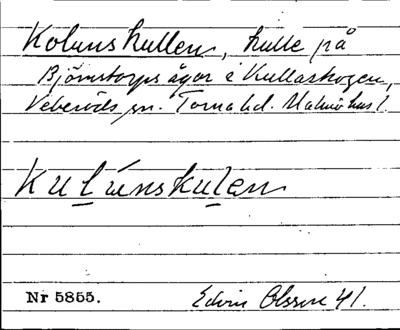 Kolunskullen, kulle på
Björnstorps ägor i Kullaskogen,
Veberöds sn. Torna hd. Malmöhus l.
Kulúnskulen
Nr 5855.
Edvin Olsson 41.